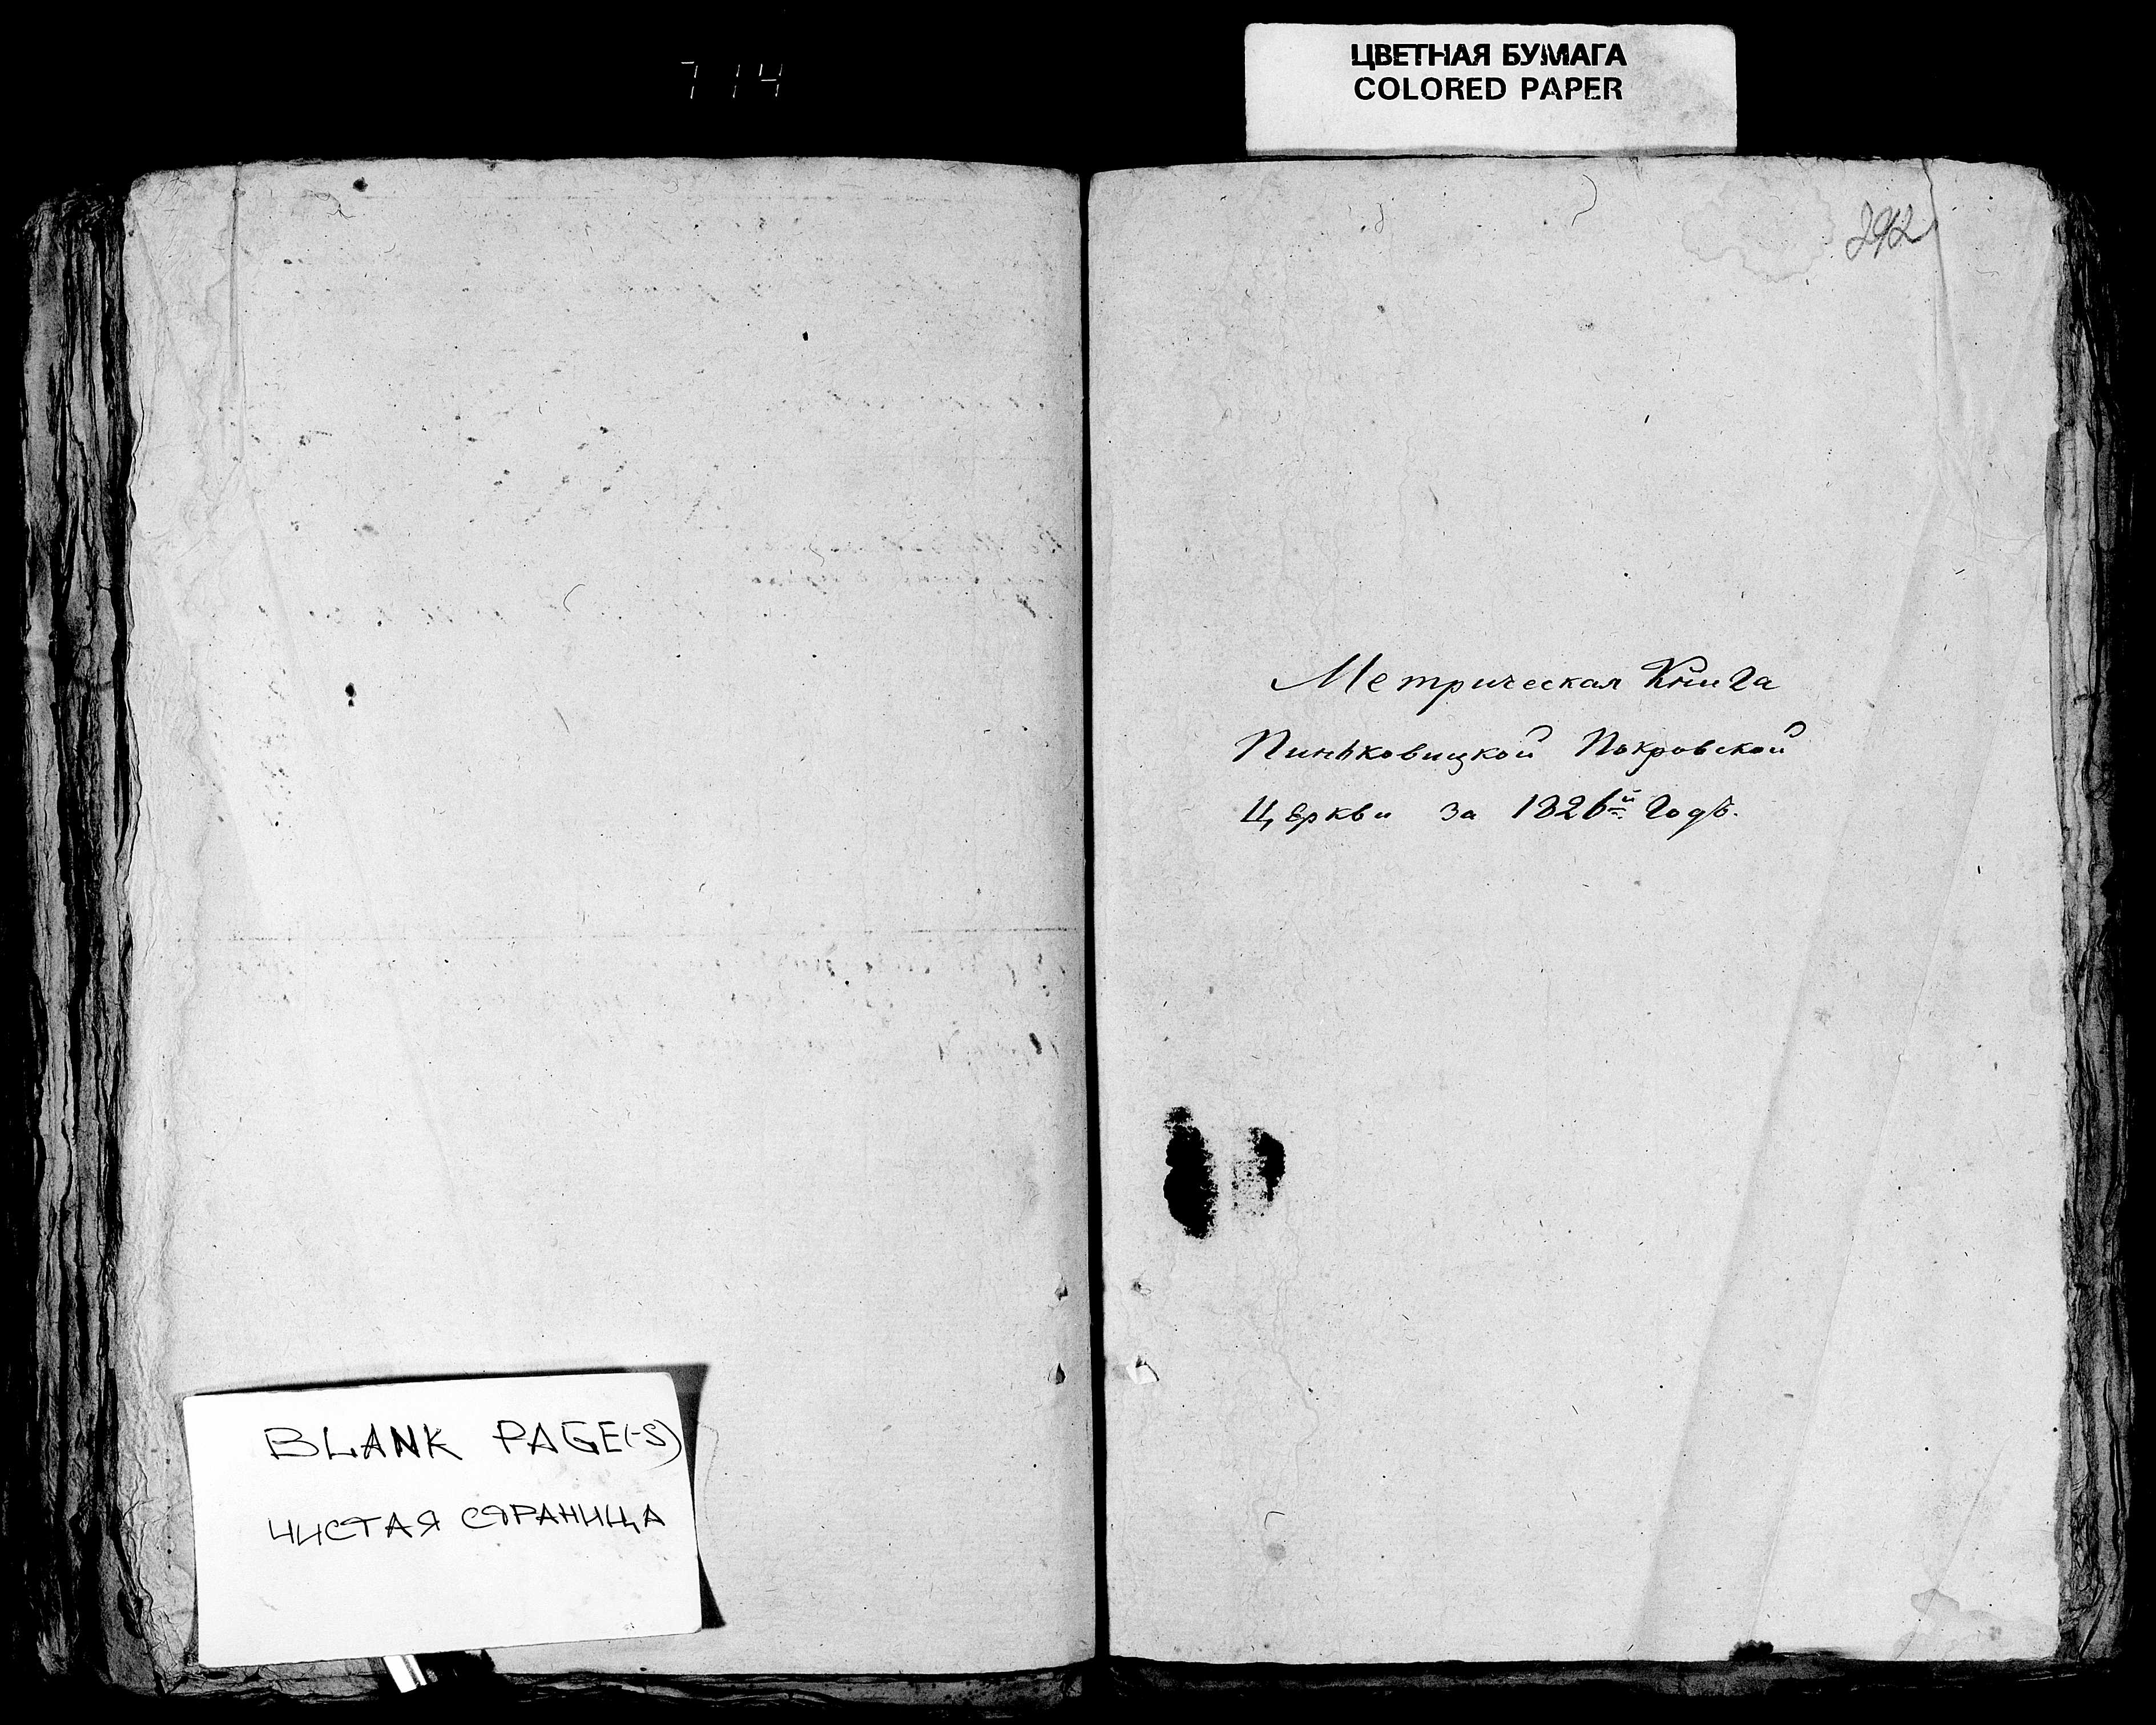 714
ЦВЕТНАЯ БУМАГА
COLORED PAPER
292
Метрическая Книга
Пиньковицкой Покровской
Церкви за 1826й годъ.
BLANK PAGE(-S)
ЧИСТАЯ СТРАНИЦА